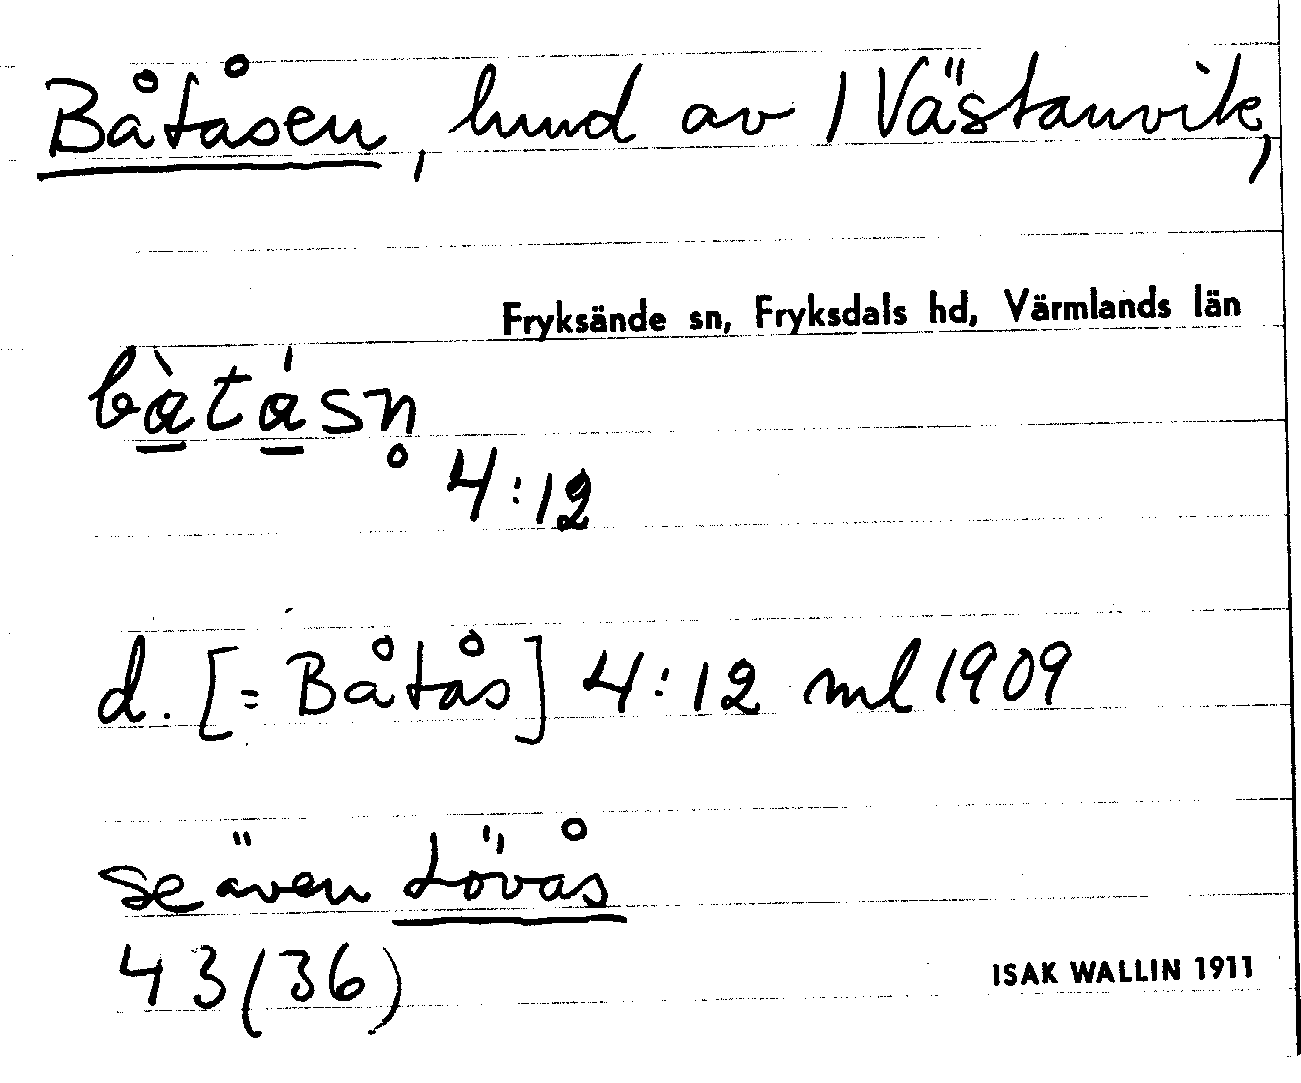 Båtåsen, lund av 1 Västanvik,
Fryksände sn, Fryksdals hd, Värmlands län
bàtásn̥
4:12
d. [= Båtås] 4:12 ml 1909
se även Lövås
43(36)
ISAK WALLIN 1911